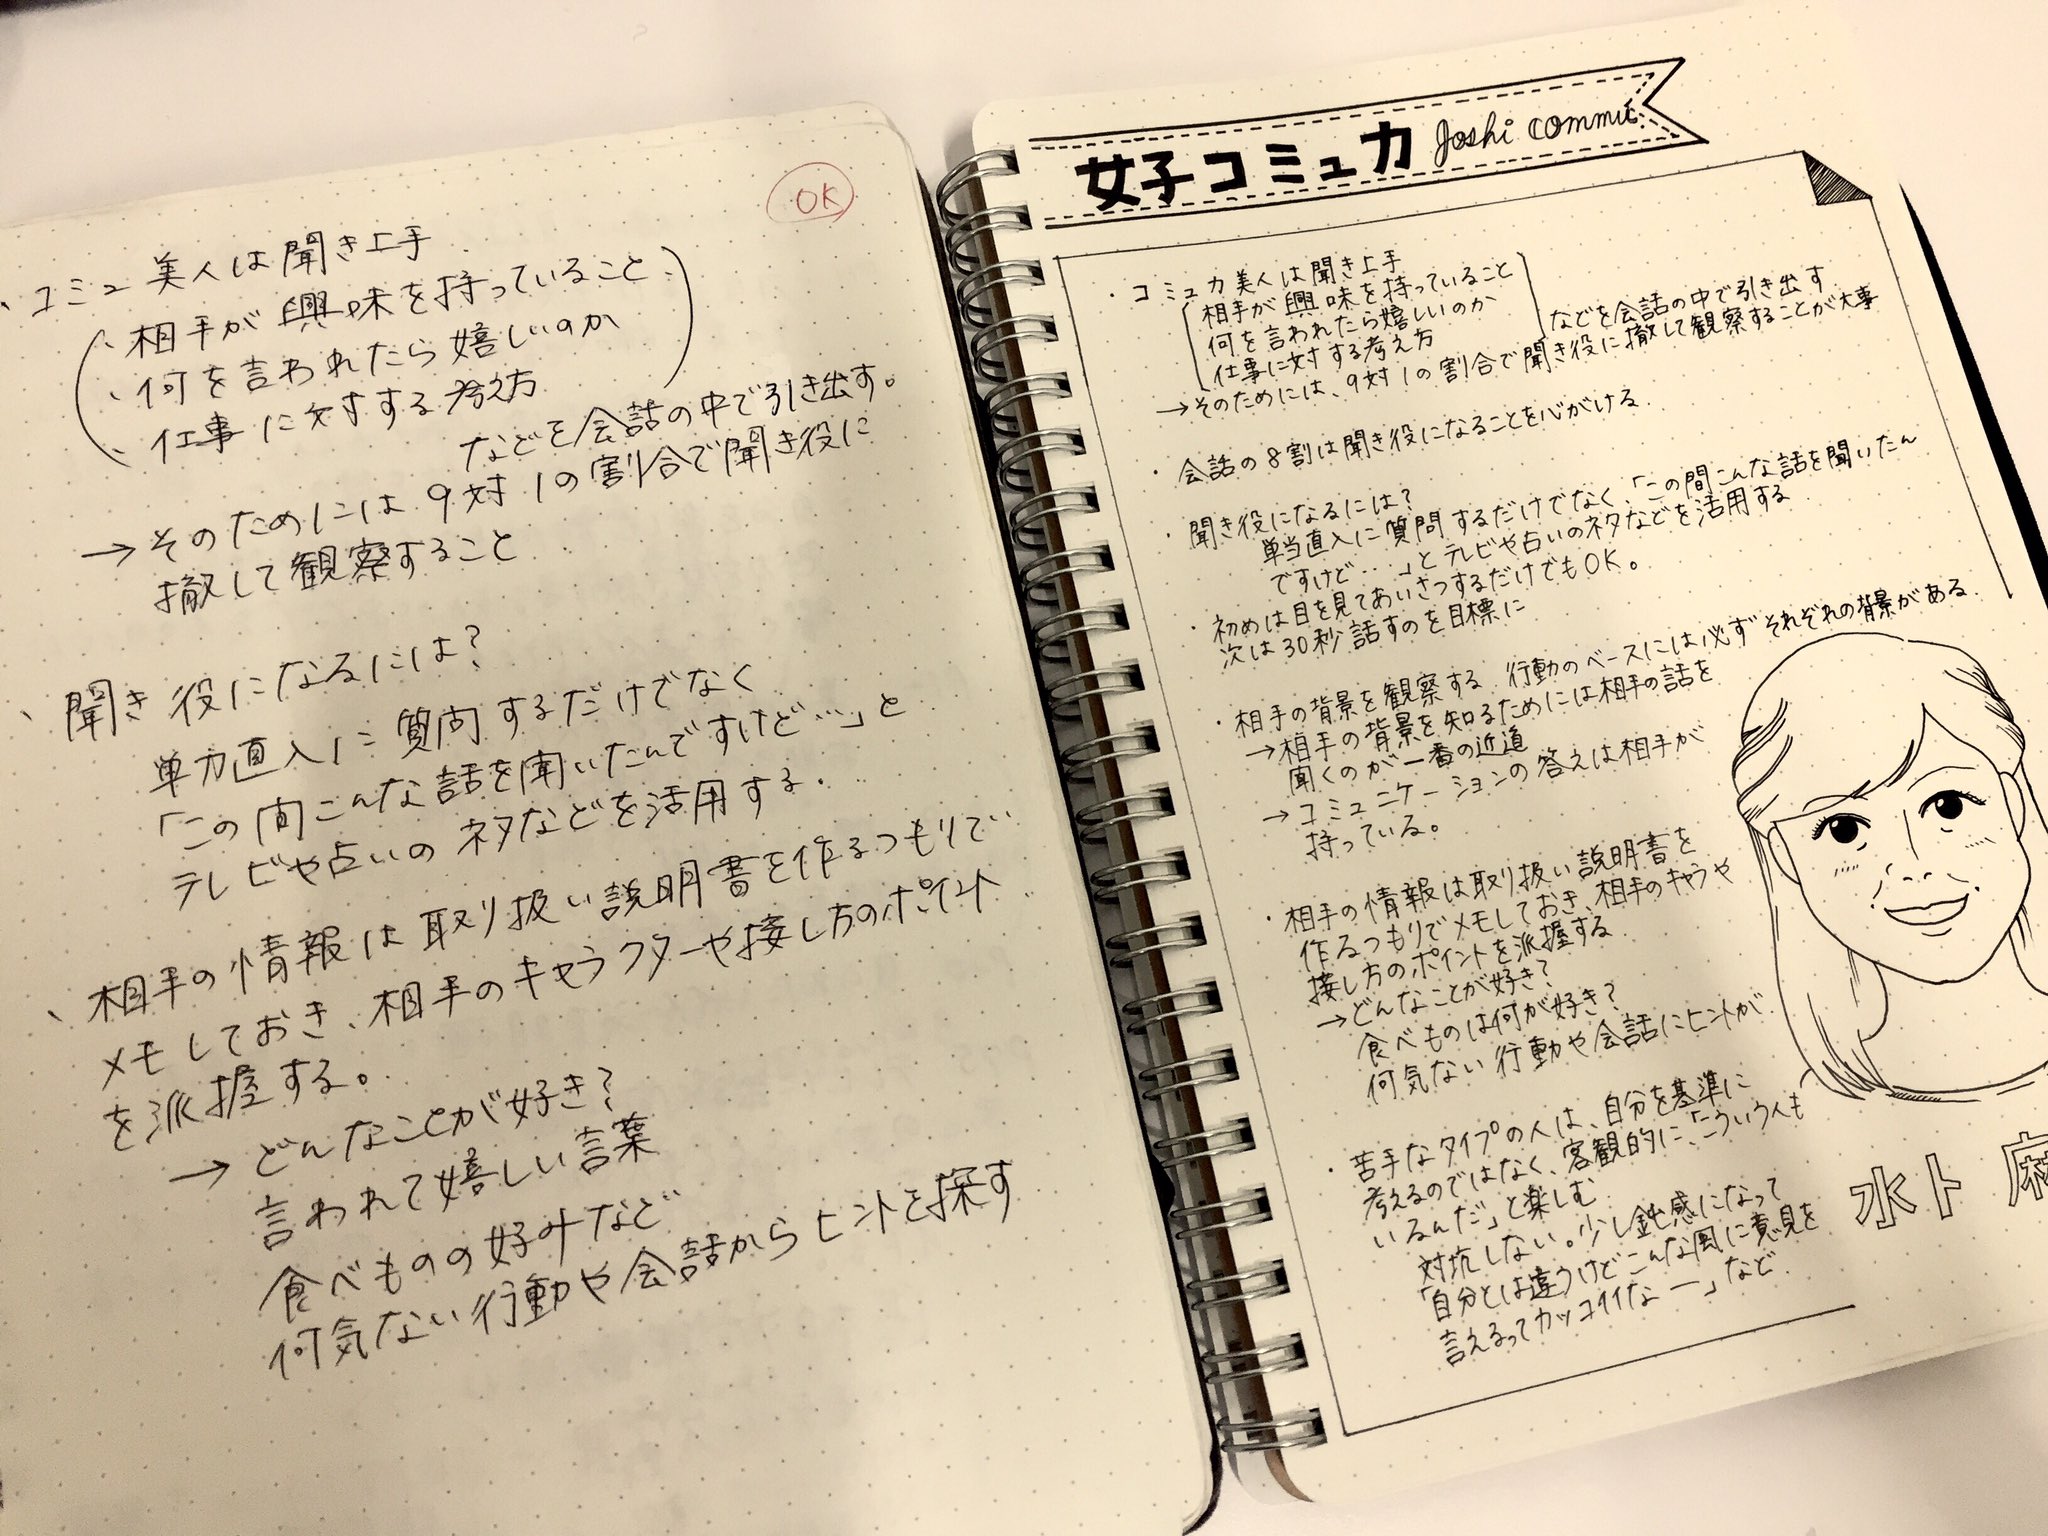 OK
、コミュ美人は聞き上手
・相手が興味を持っていること
・何を言われたら嬉しいのか
・仕事に対する考え方
などを会話の中で引き出す。
→そのためには9対1の割合で聞き役に
撤して観察すること
、聞き役になるには?
単刀直入に質問するだけでなく
「この間こんな話を聞いたんですけど…」と
テレビや占いのネタなどを活用する.
、相手の情報は取り扱い説明書を作るつもりで
メモしておき、相手のキャラクターや接し方のポイント
を派握する。
→どんなことが好き?
言われて嬉しい言葉
食べものの好みなど
何気ない行動や会話からヒントを探す
女子コミュ力 Joshi commu
・コミュ力美人は聞き上手
相手が興味を持っていること
何を言われたら嬉しいのか
仕事に対する考え方
などを会話の中で引き出す
→そのためには、9対1の割合で聞き役に撤して観察することが大事
・会話の8割は聞き役になることを心がける.
・聞き役になるには?
単当直入に質問するだけでなく、「この間こんな話を聞いたん
ですけど....」とテレビや占いのネタなどを活用する
・初めは目を見てあいさつするだけでもOK。
次は30秒話すのを目標に
・相手の背景を観察する.行動のベースには必ずそれぞれの背景がある.
→相手の背景を知るためには相手の話を
聞くのが一番の近道
→コミュニケーションの答えは相手が
持っている。
・相手の情報は取り扱い説明書を
作るつもりでメモしておき、相手のキャラや
接し方のポイントを派握する
→どんなことが好き?
食べものは何が好き?
何気ない行動や会話にヒントが
・苦手なタイプの人は、自分を基準に
考えるのではなく、客観的に、「こういう人も
いるんだ」と楽しむ
対坑しない。少し鈍感になって
「自分とは違うけどこんな風に意見を
言えるってカッコイイなー」など
水卜 麻